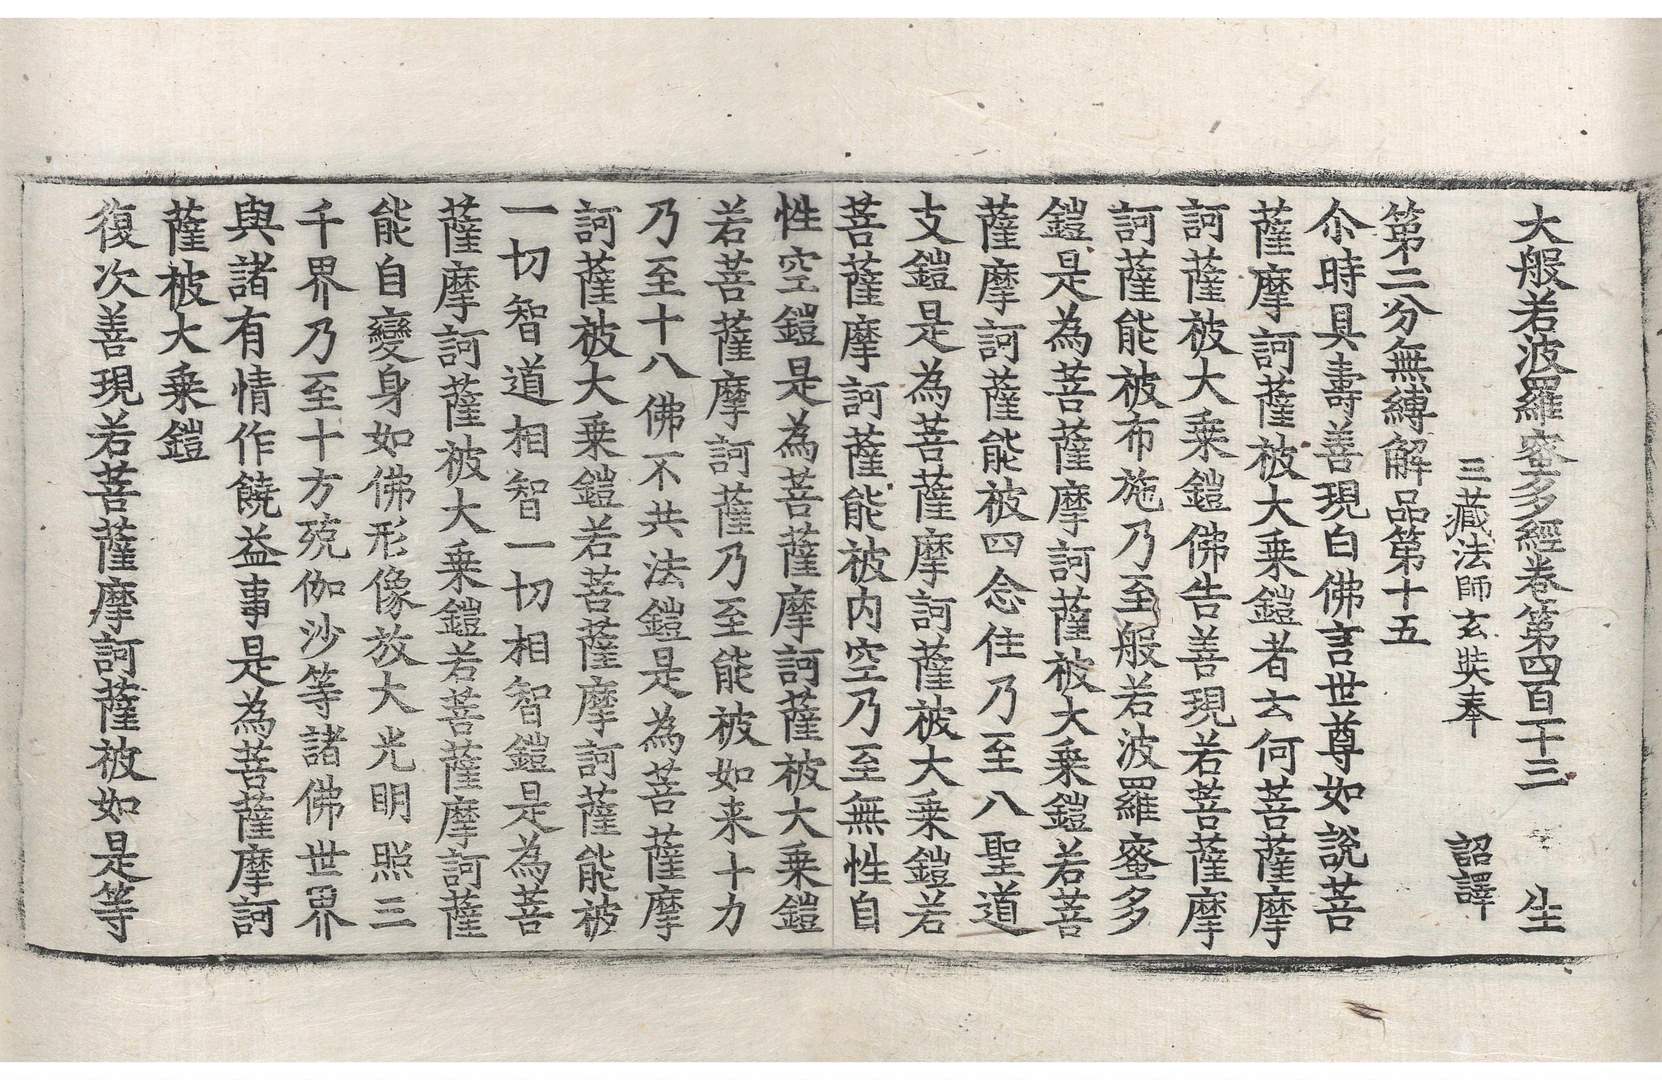 大般若波羅蜜多經卷第四百十三 生
三藏法師玄奘奉 詔譯
第二分無縛解品第十五
尒時具壽善現白佛言世尊如說菩
薩摩訶薩被大乗鎧者云何菩薩摩
訶薩被大乗鎧佛告善現若菩薩摩
訶薩能被布施乃至般若波羅蜜多
鎧是為菩薩摩訶薩被大乗鎧若菩
薩摩訶薩能被四念住乃至八聖道
支鎧是為菩薩摩訶薩被大乗鎧若
菩薩摩訶薩能被内空乃至無性自
性空鎧是為菩薩摩訶薩被大乗鎧
若菩薩摩訶薩乃至能被如来十力
乃至十八佛不共法鎧是為菩薩摩
訶薩被大乗鎧若菩薩摩訶薩能被
一切智道相智一切相智鎧是為菩
薩摩訶薩被大乗鎧若菩薩摩訶薩
能自變身如佛形像放大光明照三
千界乃至十方殑伽沙等諸佛世界
與諸有情作饒益事是為菩薩摩訶
薩被大乗鎧
復次善現若菩薩摩訶薩被如是等